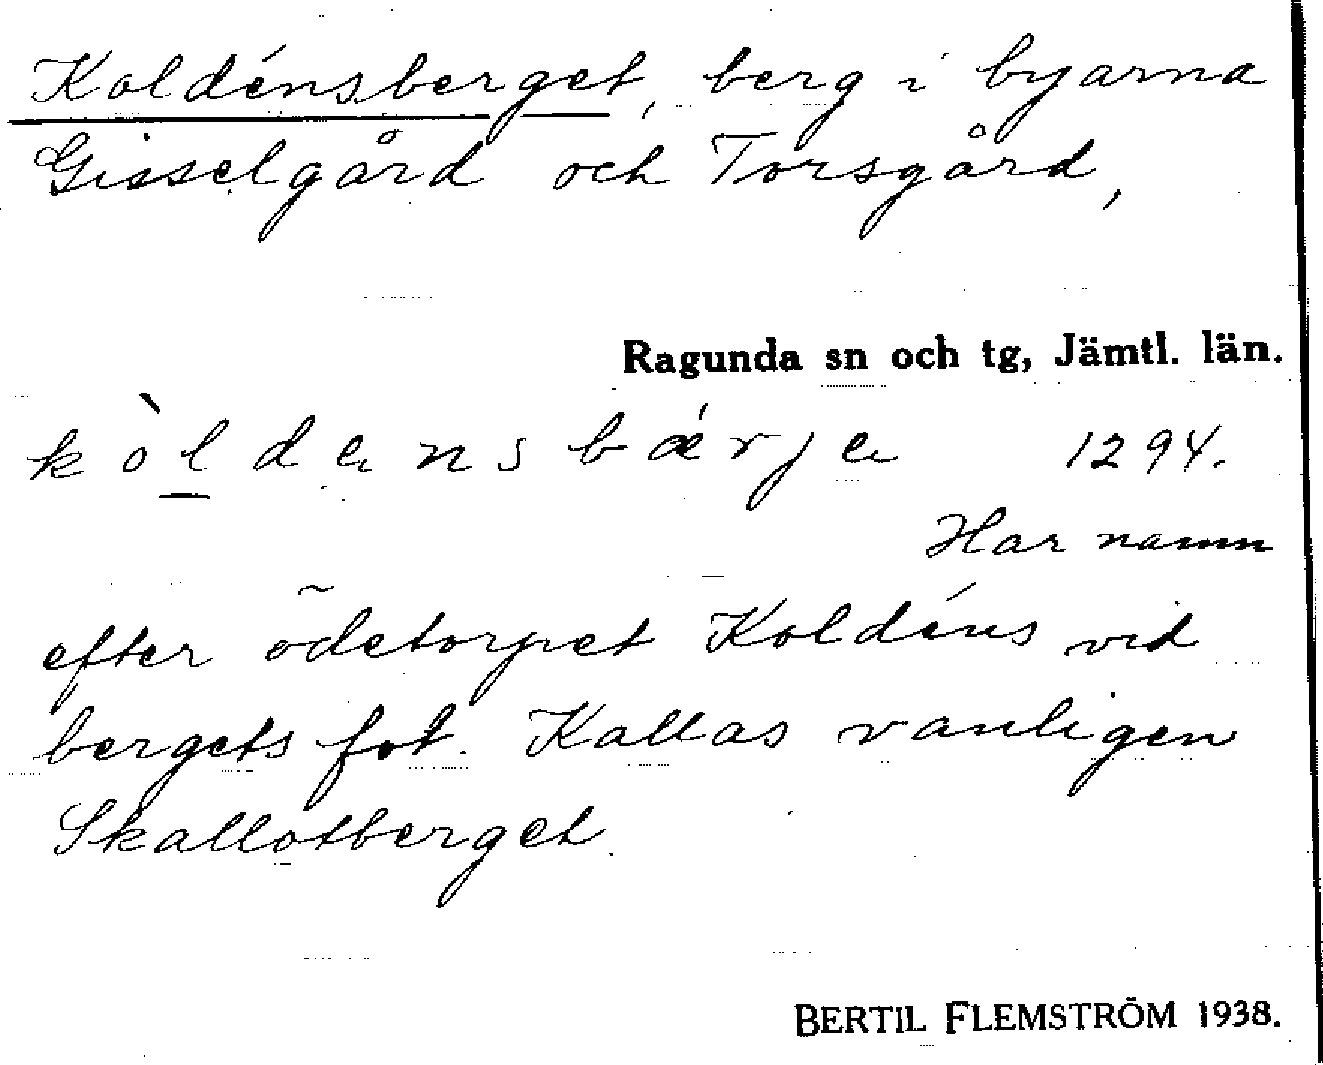 Koldénsberget, berg i byarna
Gisselgård och Torsgård,
Ragunda sn och tg, Jämtl. län.
kòldensbǽrje 1294.
Har namn
efter ödetorpet Koldéns vid
bergets fot. Kallas vanligen
Skallotberget.
BERTIL FLEMSTRÖM 1938.